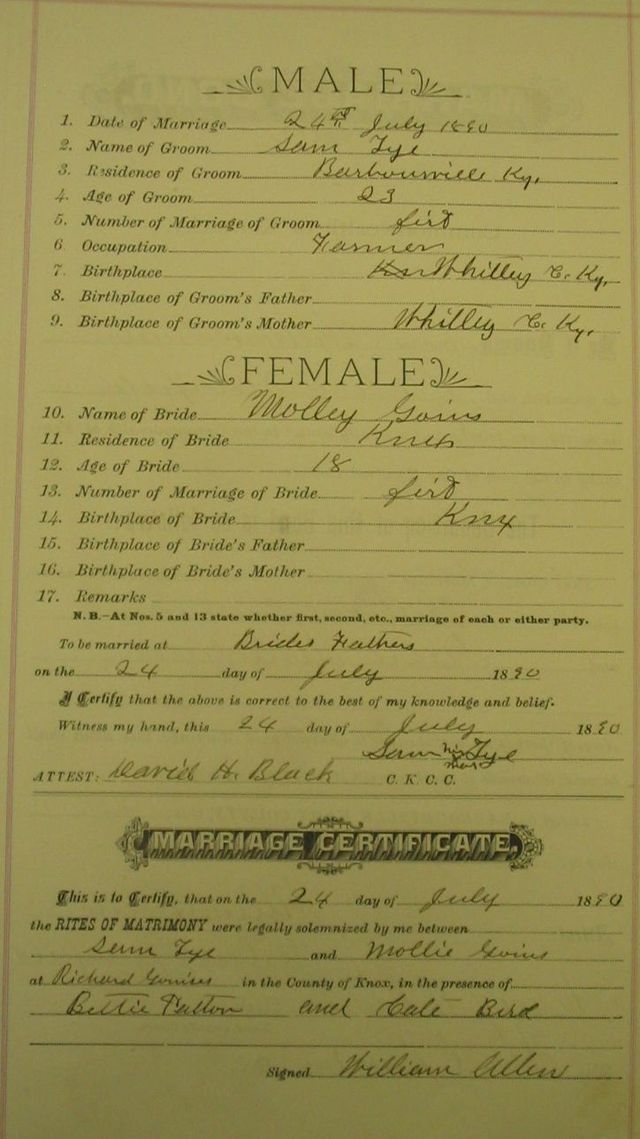 MALE
1. Date of Marriage 24th July 1890
2. Name of Groom Sam Tye
3. Residence of Groom Barbourville Ky.
4. Age of Groom 23
5. Number of Marriage of Groom first
6. Occupation Farmer
7. Birthplace Whitley C. Ky.
8. Birthplace of Groom's Father
9. Birthplace of Groom's Mother Whitley C. Ky.
FEMALE
10. Name of Bride Molley Goins
11. Residence of Bride
12. Age of Bride 18
13. Number of Marriage of Bride first
14. Birthplace of Bride Knx
15. Birthplace of Bride's Father
16. Birthplace of Bride's Mother
17. Remarks
N. B.—At Nos. 5 and 13 state whether first, second, etc., marriage of each or either party.
To be married at Brides Fathers
on the 24 day of July 1890
I Certify that the above is correct to the best of my knowledge and belief.
Witness my hand, this 24 day of July 1890
Sam his mark Tye
ATTEST: David H. Black C. K. C. C.
MARRIAGE CERTIFICATE.
This is to Certify, that on the 24 day of July 1890
the RITES OF MATRIMONY were legally solemnized by me between
Sam Tye and Mollie Goins
at Richard in the County of Knox, in the presence of
Bettie Patton and Cale Bird
Signed William Allen